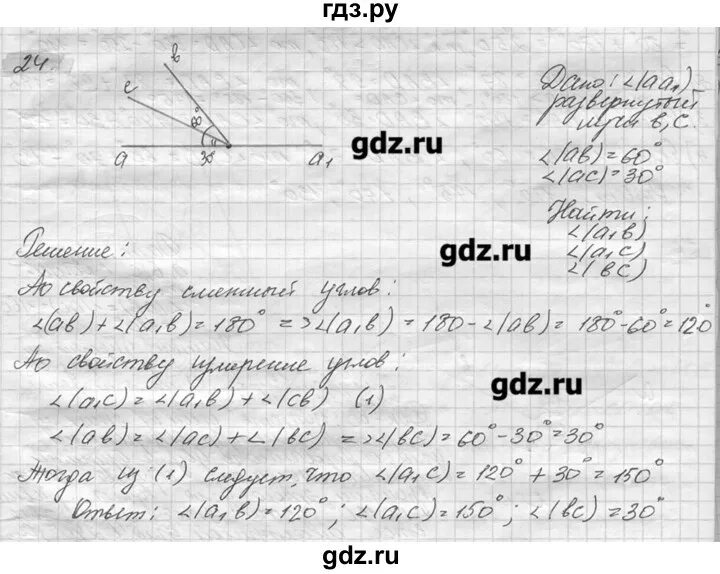 гдз.ру
24.
b
c
60°
30°
a
a₁
Дано: ∠(aa₁)
развернутый
лучи b, c.
∠(ab)=60°
∠(ac)=30°
Найти:
∠(a₁b)
∠(a₁c)
∠(bc)
gdz.ru
gdz.ru
Решение:
По свойству смежный углов:
∠(ab)+∠(a₁b)=180° => ∠(a₁b)=180-∠(ab)=180°-60°=120°
По свойству измерение углов:
gdz.ru
∠(a₁c)=∠(a₁b)+∠(cb) (1)
∠(ab)=∠(ac)+∠(bc) => ∠(bc)=60°-30°=30°
Тогда из (1) следует, что ∠(a₁c)=120°+30°=150°
Ответ: ∠(a₁b)=120°; ∠(a₁c)=150°; ∠(bc)=30°
gdz.ru